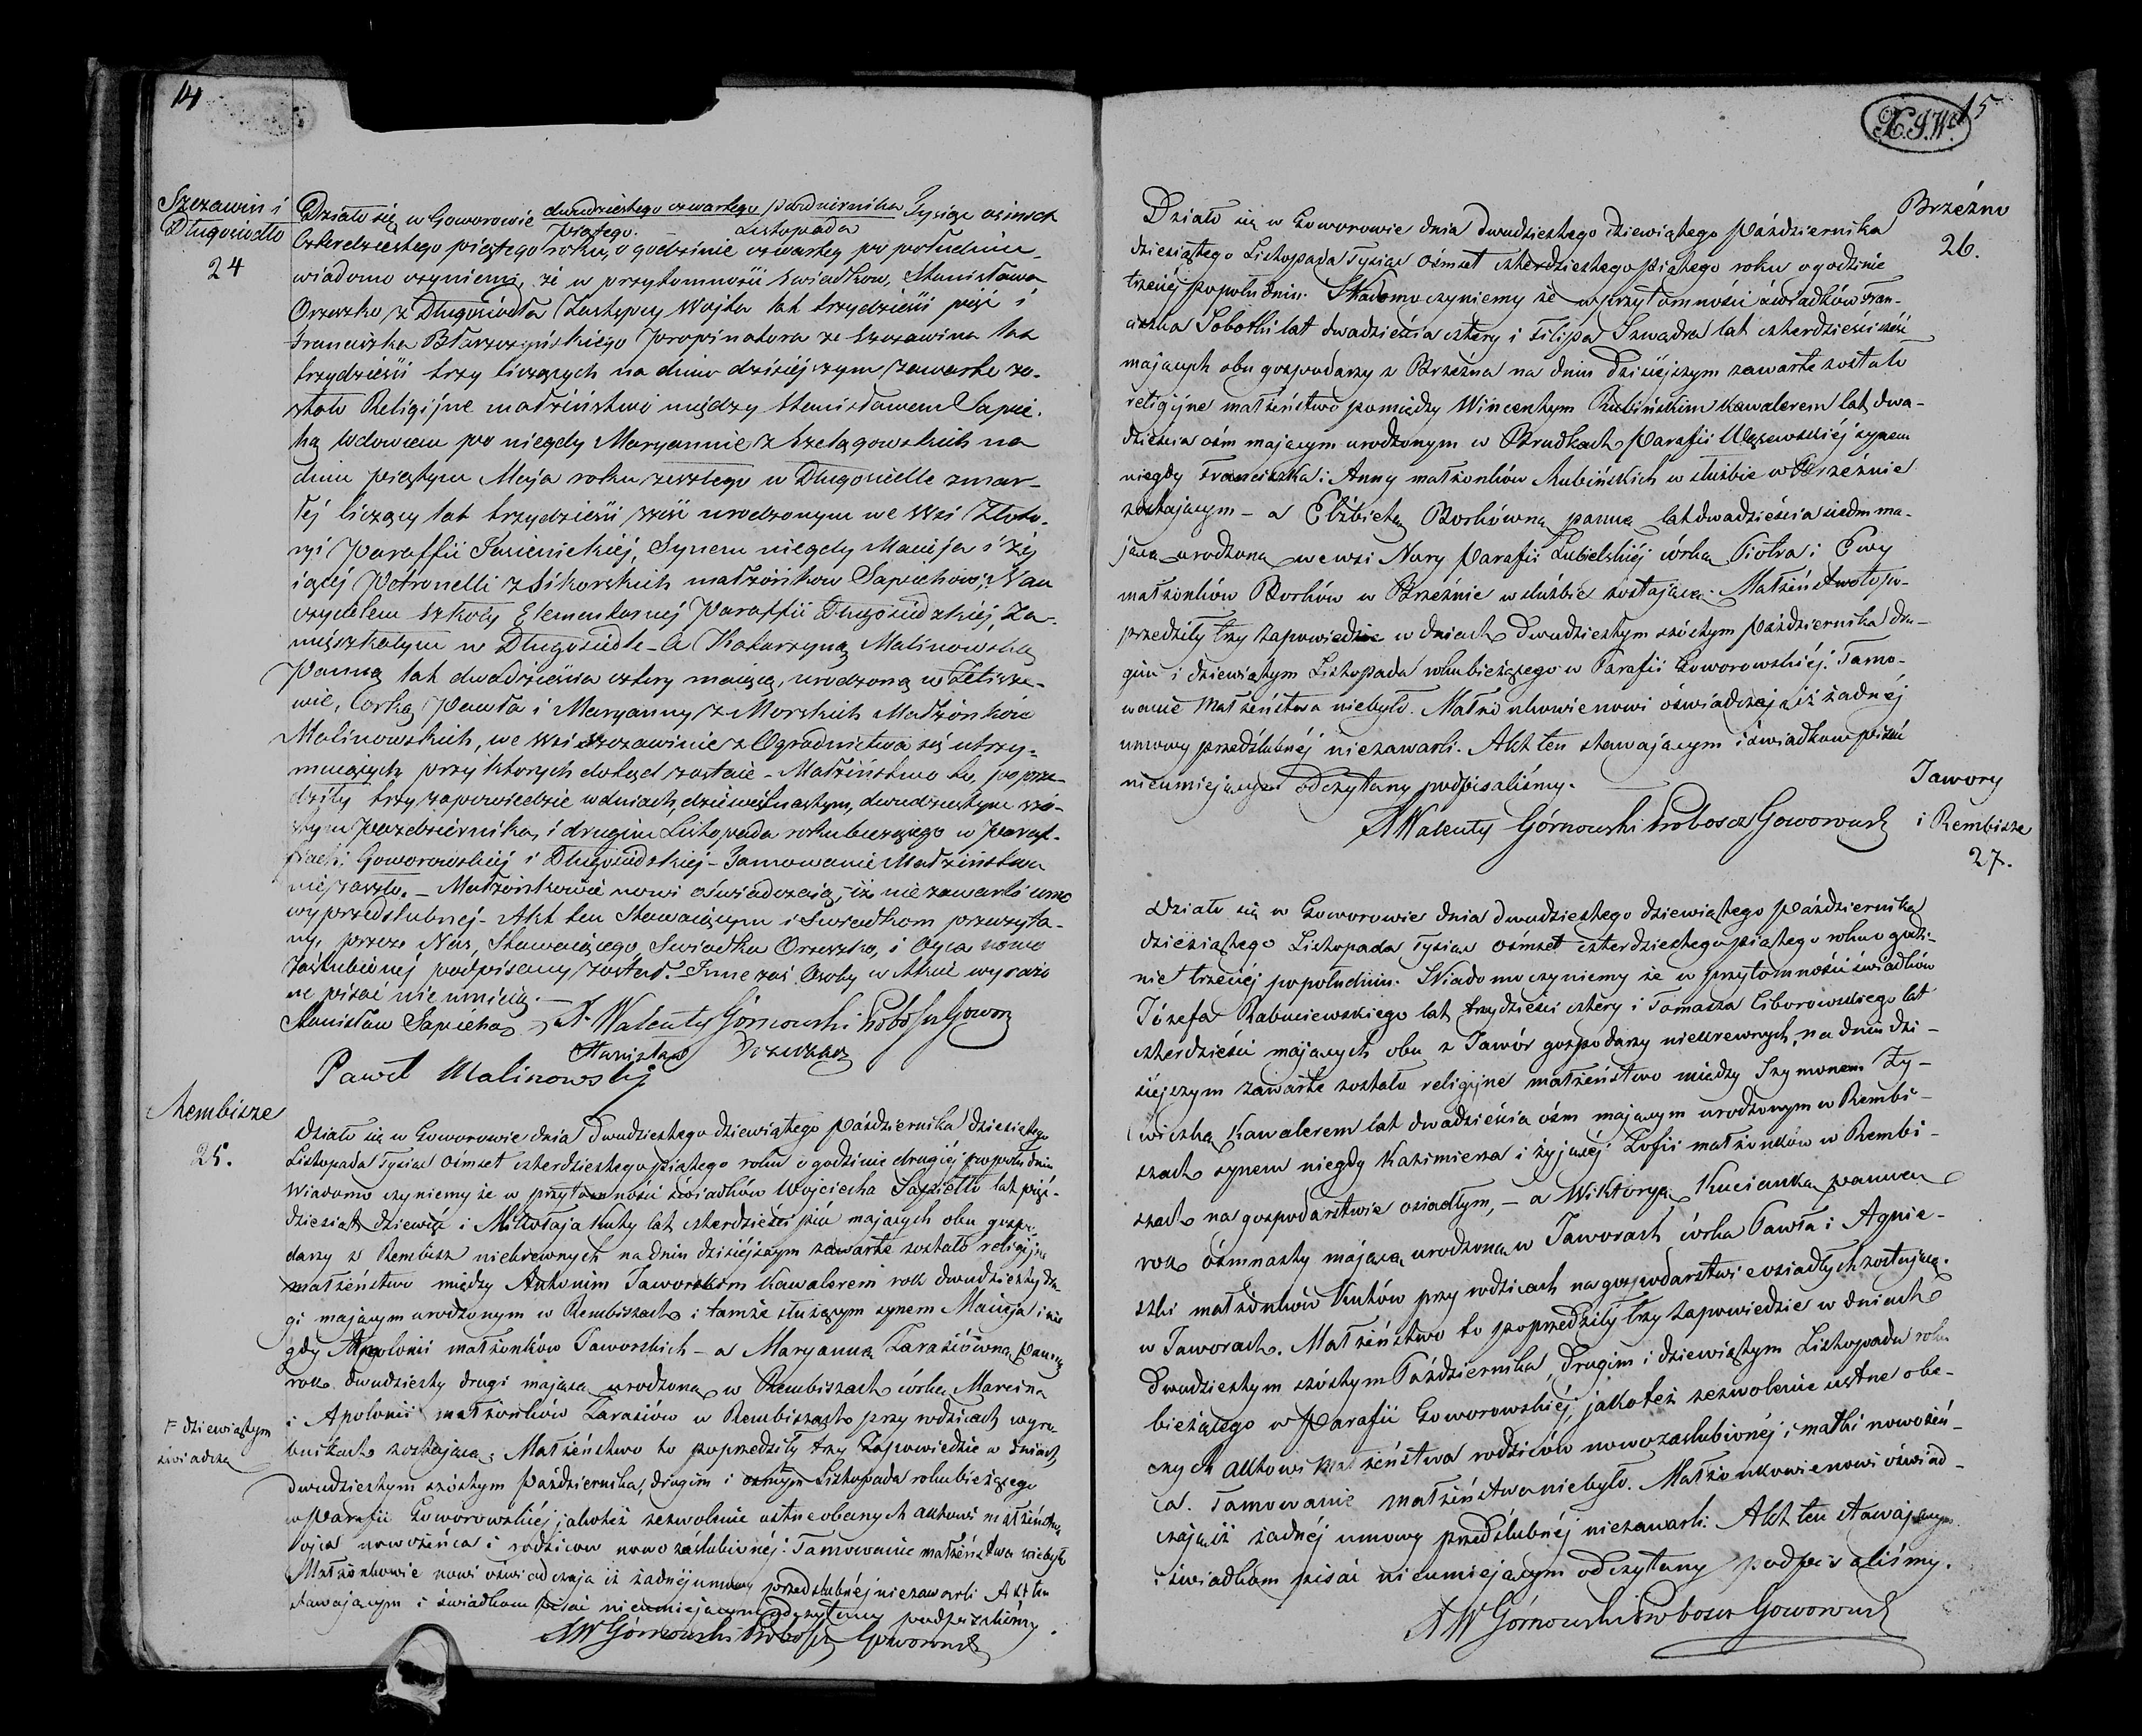 14
Szczawin i
Długosiodło
24
Działo się w Goworowie dwudziestego czwartego Października Tysiąc osimset
piątego. Listopada
Czterdziestego piątego roku, o godzinie czwartey po południu
wiadomo czyniemy, że w przytomności Swiadkow, Stanisława
Orzeszko z Długosiodła Zastępcy Wojta lat trzydzieści pięć i
Franciszka Propinatora ze Szczawina lat
trzydzieści trzy liczących na dniu dzisiejszym zawarte zo-
stało Religijne małżeństwo między Stanisławem Sapie-
hą Wdowcem po niegdy Maryannie z Szelągowskich na
dniu piątym Maja roku zeszłego w Długosiedle zmar-
łej liczący lat trzydzieści sześć urodzonym we Wsi Złoto-
ryi Paraffii Synem niegdy Macieja i żij
iącéj Petronelli z Sikorskich małżonkow Sapiehów, Nau
czycielem Szkoły Elementarnej Paraffii Długosiodzkiéj, Za-
mieszkałym w Długosiedle - a Katarzyną Malinowską
Panną lat dwadzieścia cztery maiącą, urodzoną w
wie, Corką Pawła i Maryanny z Morskich Małżonkow
Malinowskich, we Wsi Szczawinie z Ogrodnictwa się utrzy-
muiących przy ktorych dotąd zostaie - Małżeństwo to, poprze-
dziły trzy zapowiedzie w dniach, dziewiętnastym, dwudziestym szó-
stym Pazdziernika, i drugim Listopada roku bieżącego w Paraf-
fiach: Goworowskiéj i Długosiodzkiej - Tamowanie Małżeństwa
nie zaszło. - Małżonkowie nowi oświadczaią, iż nie zawarli umo
wy przedslubnej - Akt ten Stawaiącym i Swiadkom przeczyta-
ny, przez Nas, Stawaiącego, Swiadka Orzeszko, i Oyca nowo
Zaślubionej podpisany został. Inne zaś Osoby w Akcie wyrażo
ne pisać nie umieią. -
Stanisław Sapieha X. Walenty Górnowski Proboszcz Gowor
Stanisław Orzeszko
Paweł Malinowskij
Rembisze
25.
Działo się w Goworowie dnia Dwudziestego dziewiątego Października dziesiątego
Listopada Tysiąc Ośmset czterdziestego piątego roku o godzinie drugiéj popołudniu
Wiadomo czyniemy że w przytomności świadków Wojciecha lat pięć-
dziesiąt dziewięć i Mikołaja Kuty lat czterdzieści pięć mających obu gospo-
darzy z Rembisz niekrewnych na dniu dzisiéjszym zawarte zostało religijne
małżeństwo między Antonim Jaworskim Kawalerem rok dwudziesty dru-
gi mającym urodzonym w Rembiszach i tamże służącym synem Macieja i nie
gdy Apolonii małżonków Jaworskich - a Maryanną Zaraziówną Panną
rok dwudziesty drugi mającą urodzoną w Rembiszach córką Marcina
i Apolonii małżonków Zaraziów w Rembiszach przy rodzicach wyro
bnikach zostającą; Małżeństwo to poprzedziły trzy Zapowiedzie w dniach
dwudziestym szóstym Października, drugim i ósmym Listopada roku bieżącego
w Parafii Goworowskiéj jakoteż zezwolenie ustne obecnych aktowi małżeństwa
ojca nowożeńca i rodziców nowo zaślubionéj: Tamowanie małżeństwa niebyło
Małżonkowie nowi oświadczają iż żadnéj umowy przedślubnéj niezawarli Akt ten
stawającym i świadkom pisać nieumiejącym odczytany podpisaliśmy.
X W Górnowski Proboszcz Goworowsk
F dziewiątym
świadczę
15
X.G.W.
Brzeźno
26.
Działo się w Goworowie dnia dwudziestego dziewiątego Października
dziesiątego Listopada Tysiąc Ośmset czterdziestego piątego roku o godzinie
trzeciéj popołudniu. Wiadomo czyniemy że w przytomności świadków Fran-
ciszka Sobotki lat dwadzieścia cztery i Filipa Szwadra lat czterdzieści sześć
mających obu gospodarzy z Brzeźna na dniu dzisiejszym zawarte zostało
religijne małżeństwo pomiędzy Wincentym Rubińskim kawalerem lat dwa-
dzieścia ośm mającym urodzonym w Brudkach Parafii Wąsewskiéj synem
niegdy Franciszka i Anny małżonków Rubińskich w służbie w Brzeźnie
zostającym - a Elżbietą Borkówną panną lat dwadzieścia siedm ma-
jącą urodzoną we wsi Nury Parafii Lubielskiéj córką Piotra i Ewy
małżonków Borków w Brzeźnie w służbie zostającą. Małżeństwo to po-
przedziły trzy zapowiedzie w dniach Dwudziestym szóstym Października dru-
gim i dziewiątym Listopada roku bieżącego w Parafii Goworowskiéj. Tamo-
wanie Małżeństwa niebyło. Małżonkowie nowi oświadczają iż żadnéj
umowy przedślubnéj niezawarli. Akt ten stawającym i świadkom pisać
nieumiejącym odczytany podpisaliśmy.
X Walenty Górnowski Proboszcz Goworowsk
Jawory
i Rembisze
27.
Działo się w Goworowie dnia dwudziestego dziewiątego Października
dziesiątego Listopada Tysiąc Ośmset czterdziestego piątego roku o godzi-
nie trzeciéj popołudniu. Wiadomo czyniemy że w przytomności świadków
Józefa Rabuciewskiego lat trzydzieści cztery i Tomasza Ciborowskiego lat
czterdzieści mających obu z Jawór gospodarzy niekrewnych, na dniu dzi-
siejszym zawarte zostało religijne małżeństwo między Szymonem Ży-
wiczką Kawalerem lat dwadzieścia ośm mającym urodzonym w Rembi-
szach synem niegdy Kazimierza i żyjącéj Zofii małżonków w Rembi-
szach na gospodarstwie osiadłym, - a Wiktoryą Kucianką panną
rok ośmnasty mającą urodzoną w Jaworach córką Pawła i Agnie-
szki małżonków Kutów przy rodzicach na gospodarstwie osiadłych zostającą.
w Jaworach. Małżeństwo to poprzedziły trzy Zapowiedzie w dniach
Dwudziestym szóstym Października, Drugim i dziewiątym Listopada roku
bieżącego w Parafii Goworowskiéj, jakoteż zezwolenie ustne obe-
cnych Aktowi Małżeństwa rodziców nowozaślubionéj i matki nowożeń-
ca. Tamowanie małżeństwa niebyło. Małżonkowie nowi oświad-
czają iż żadnéj umowy przedślubnéj niezawarli. Akt ten stawającym
i świadkom pisać nieumiejącym odczytany podpisaliśmy.
X W Górnowski Proboszcz Goworowsk